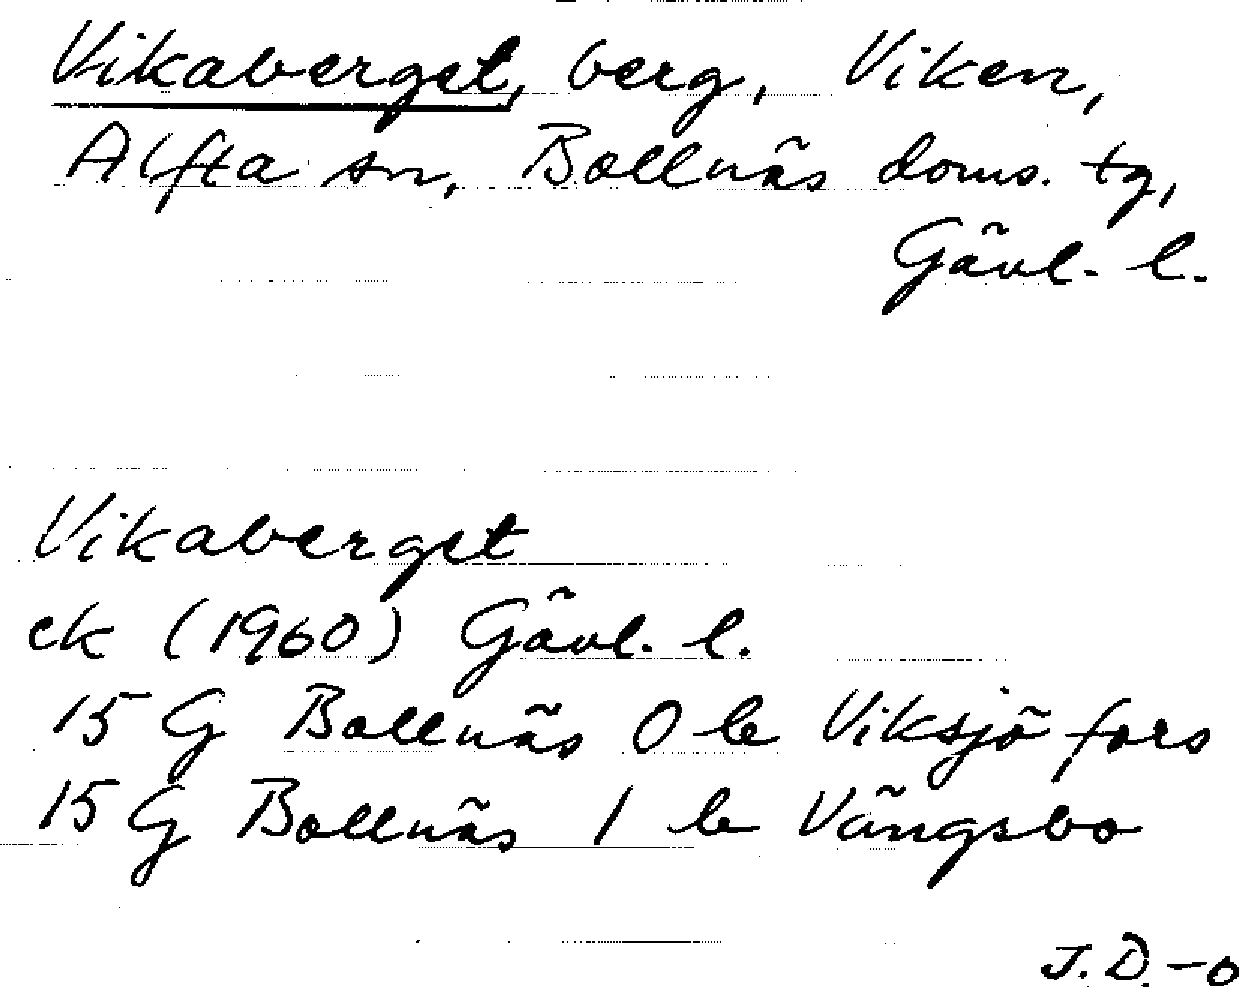 Vikaberget, berg, Viken,
Alfta sn, Bollnäs doms. tg,
Gävl. l.
Vikaberget
ek (1960) Gävl. l.
15 G Bollnäs 0 b Viksjöfors
15 G Bollnäs 1 b Vängsbo
J.D.-o